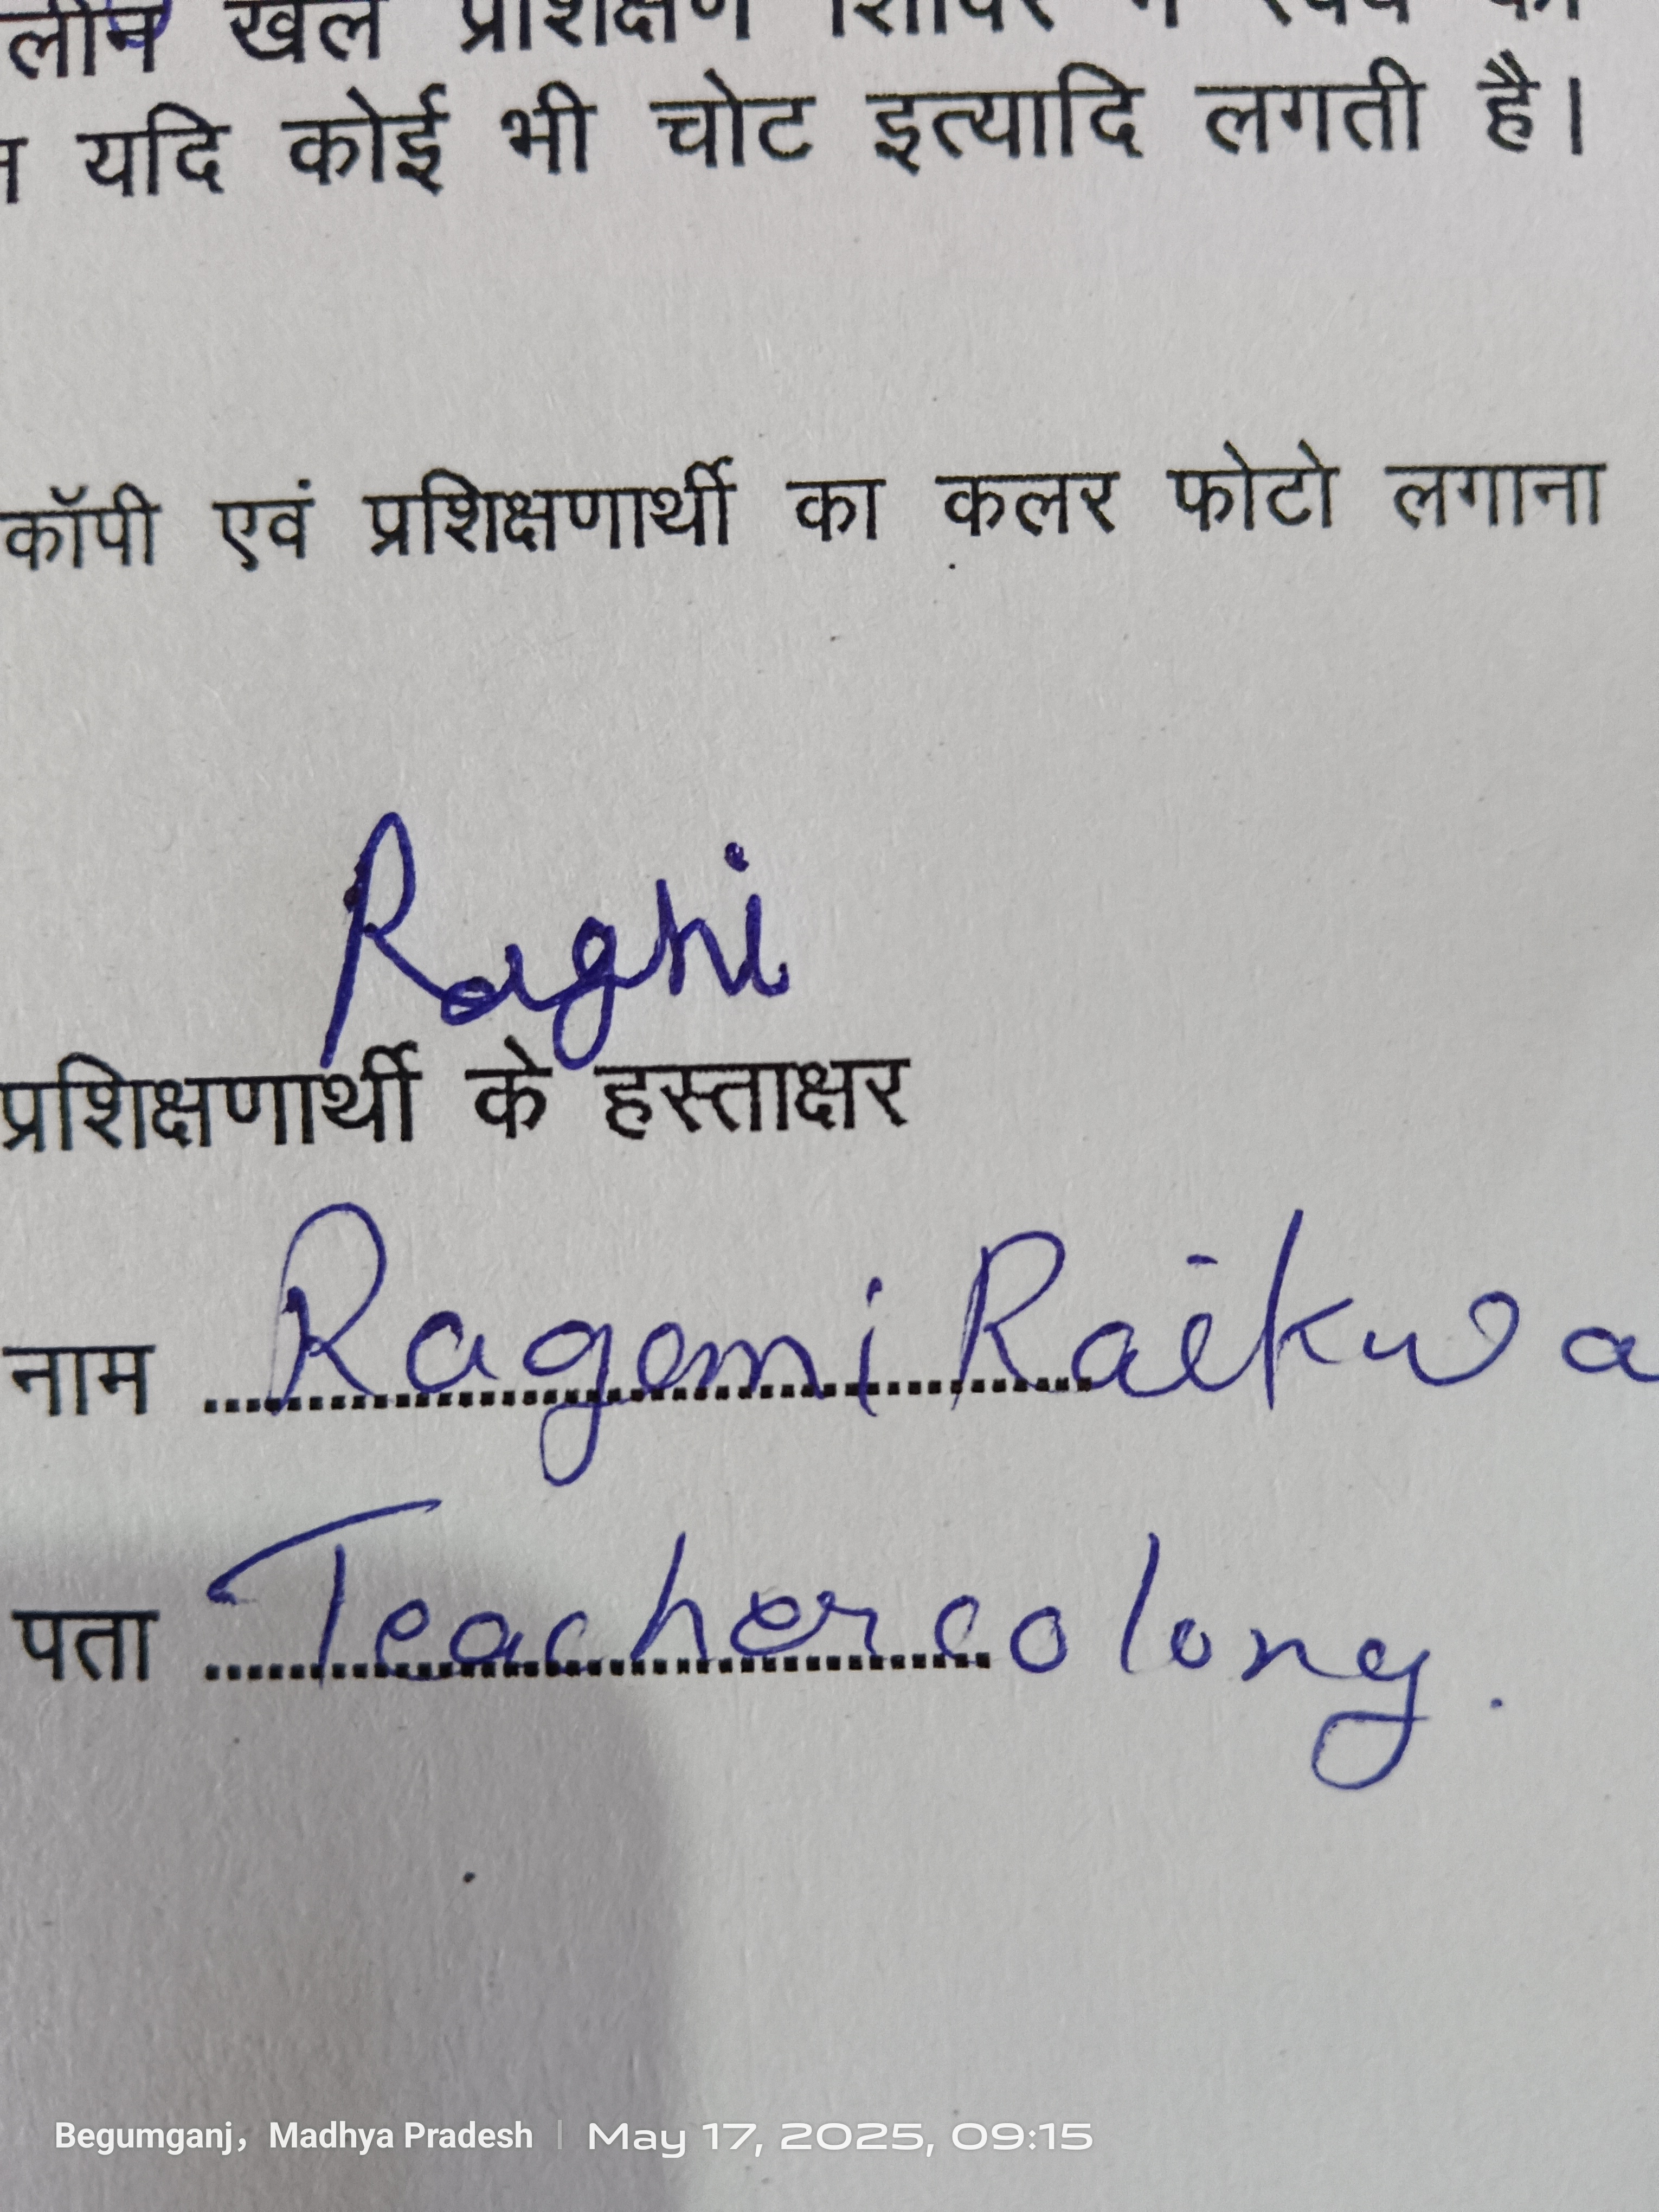 लीन खेल प्रशिक्षण शिविर में स्वयं की
यदि कोई भी चोट इत्यादि लगती है।
कॉपी एवं प्रशिक्षणार्थी का कलर फोटो लगाना
Raghi
प्रशिक्षणार्थी के हस्ताक्षर
नाम Ragemi Raikwa
पता Teacher colony.
Begumganj, Madhya Pradesh | May 17, 2025, 09:15